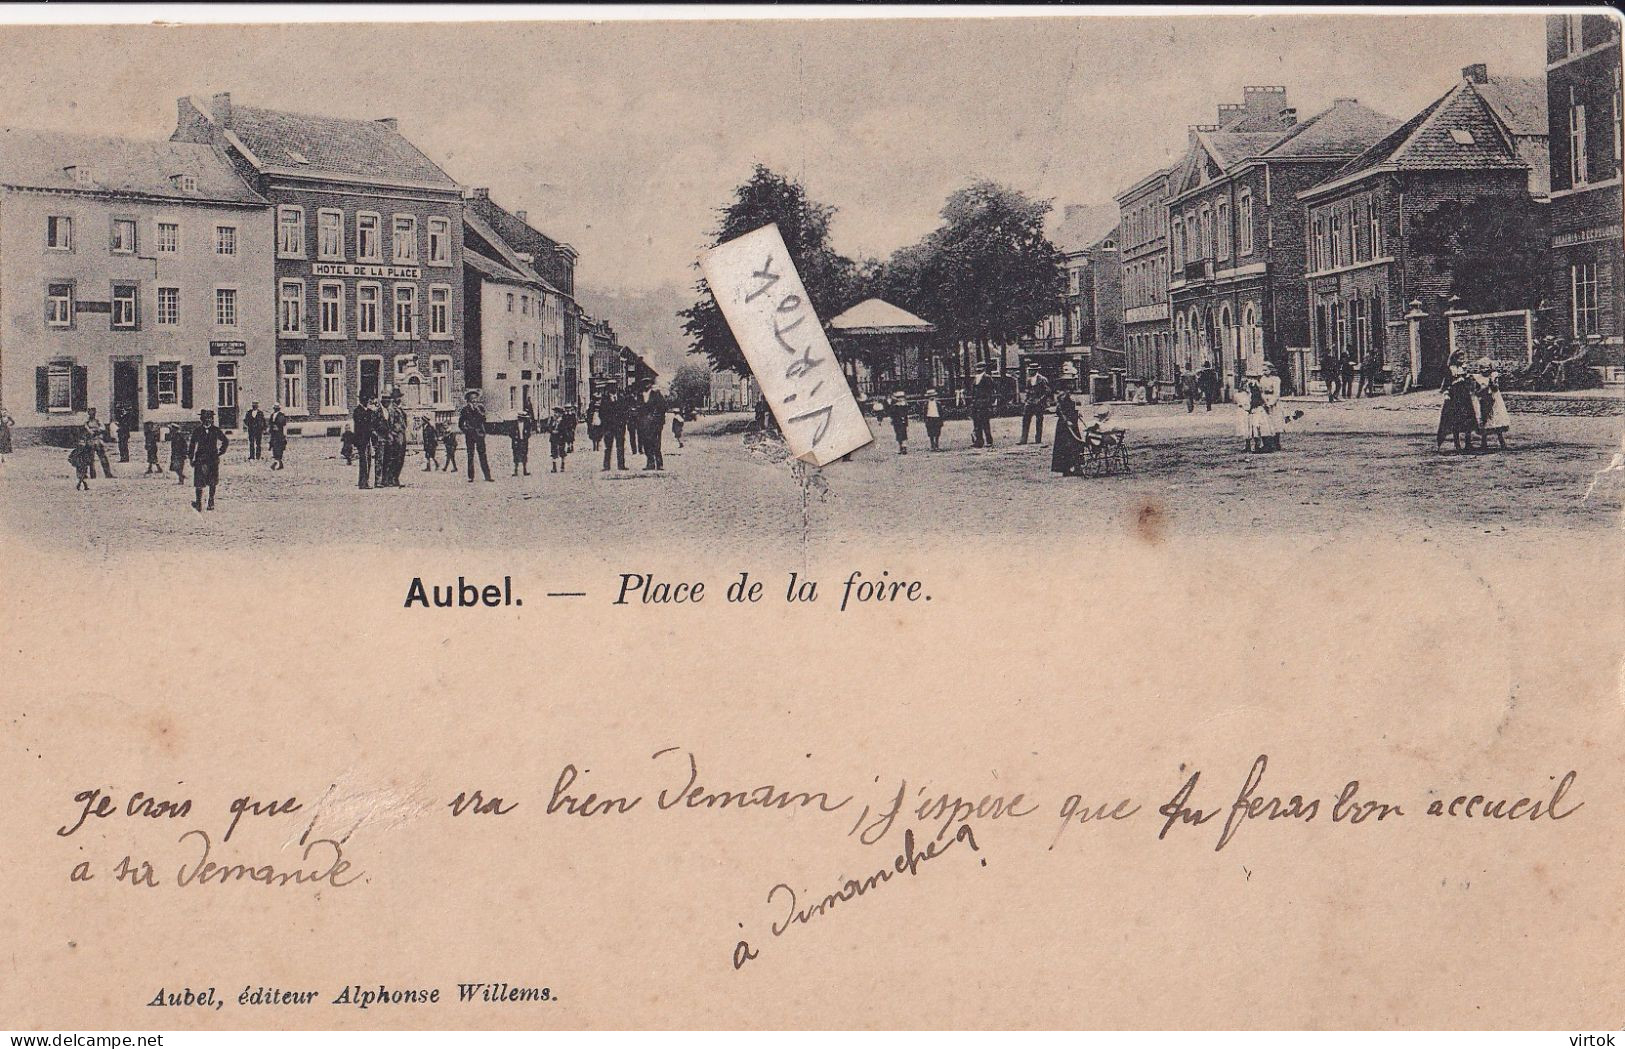 HOTEL DE LA PLACE
VIRTOK
Aubel. — Place de la foire.
Je crois que ira bien demain, j'espère que tu feras bon accueil
à sa demande.
à dimanche ?
Aubel, éditeur Alphonse Willems.
delcampe.net
virtok